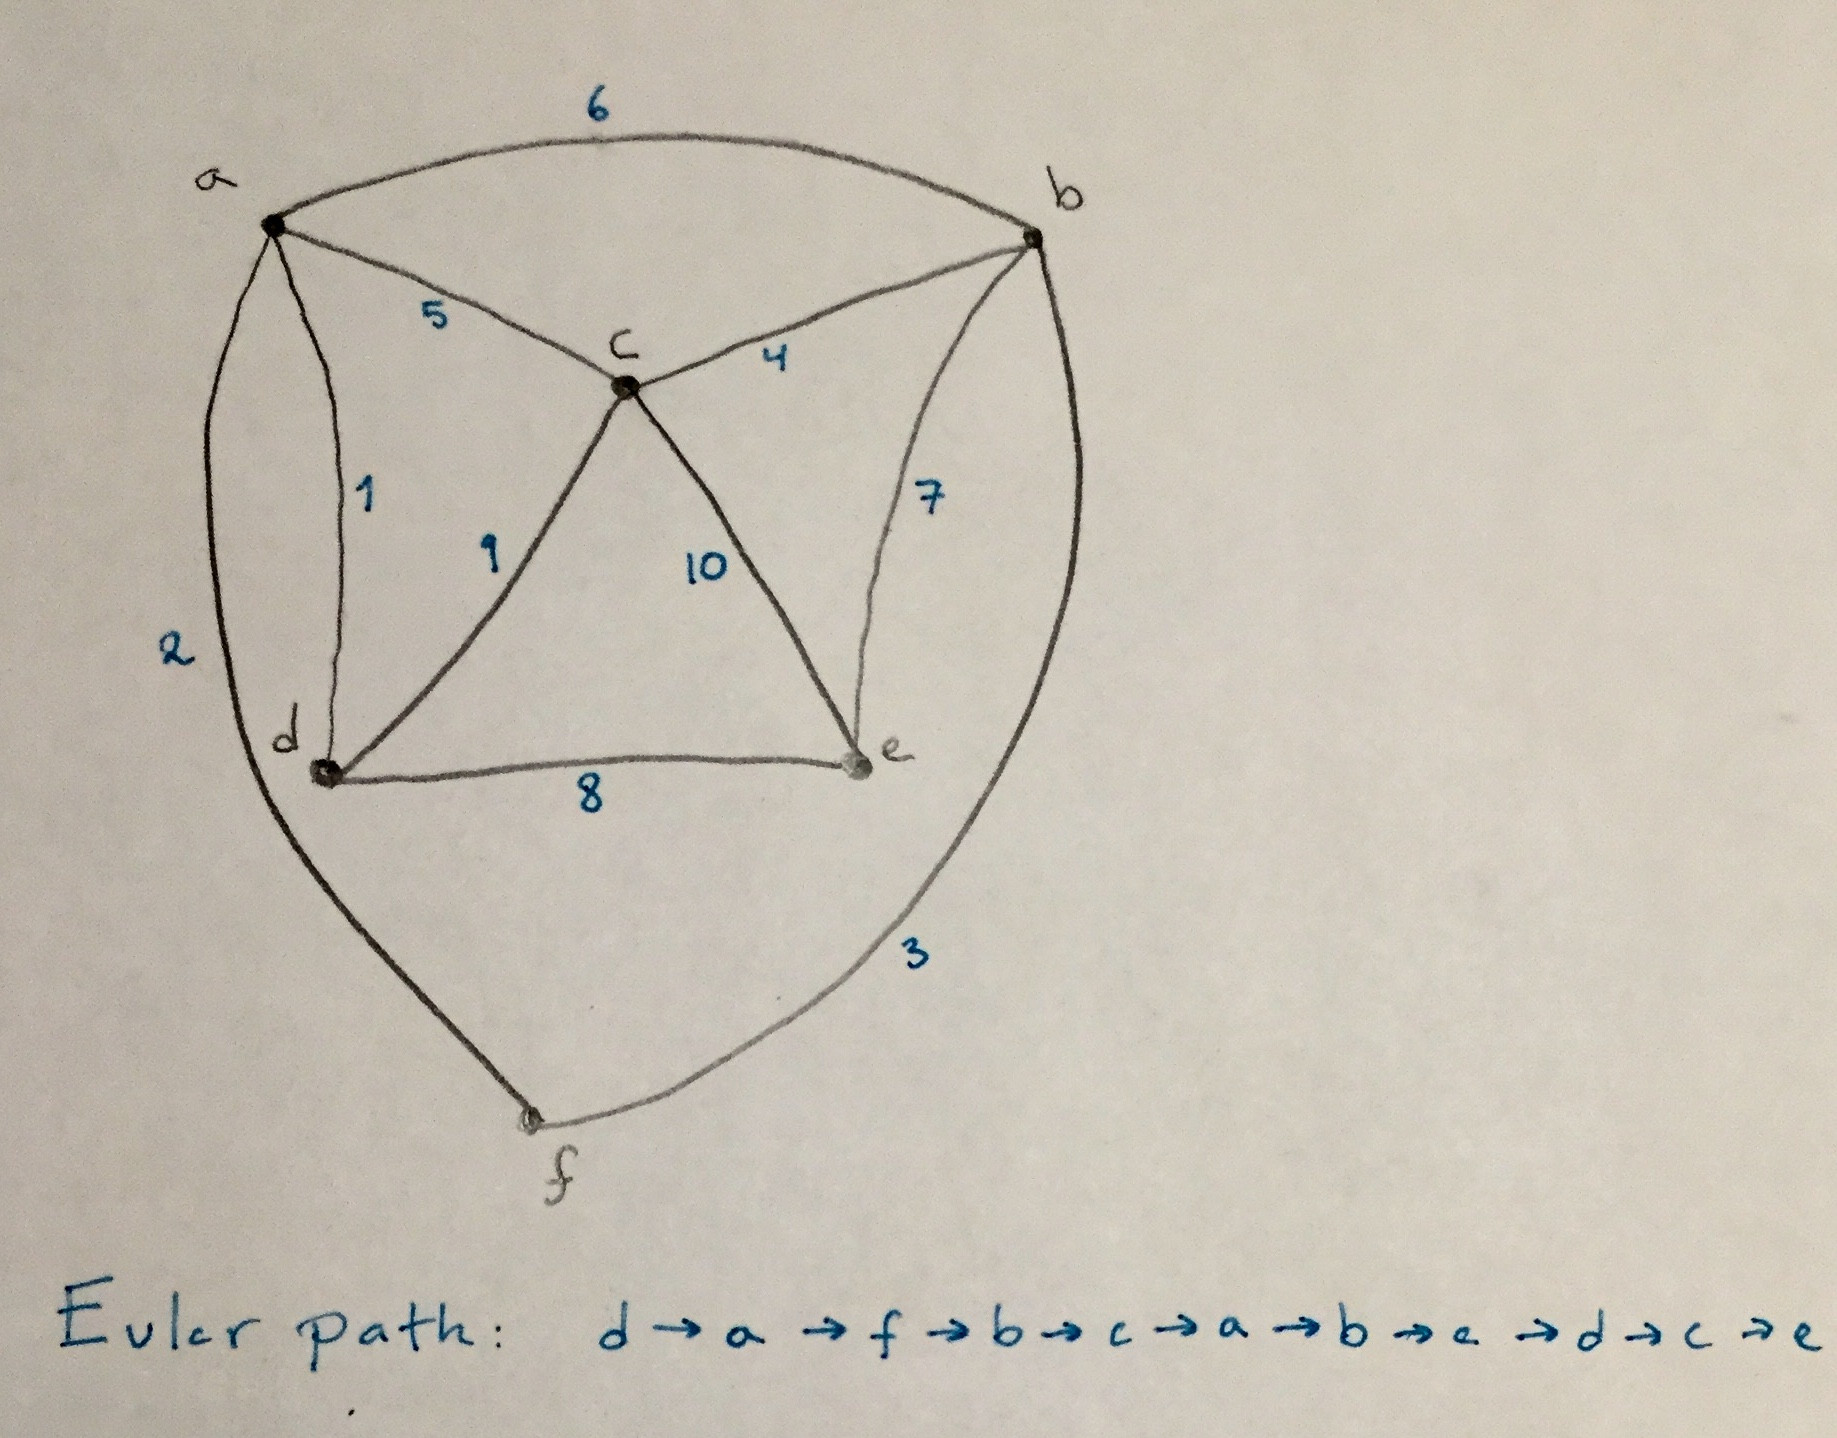 6
a
b
5
c
4
1
7
9
10
2
d
e
8
3
f
Euler path: d → a → f → b → c → a → b → e → d → c → e